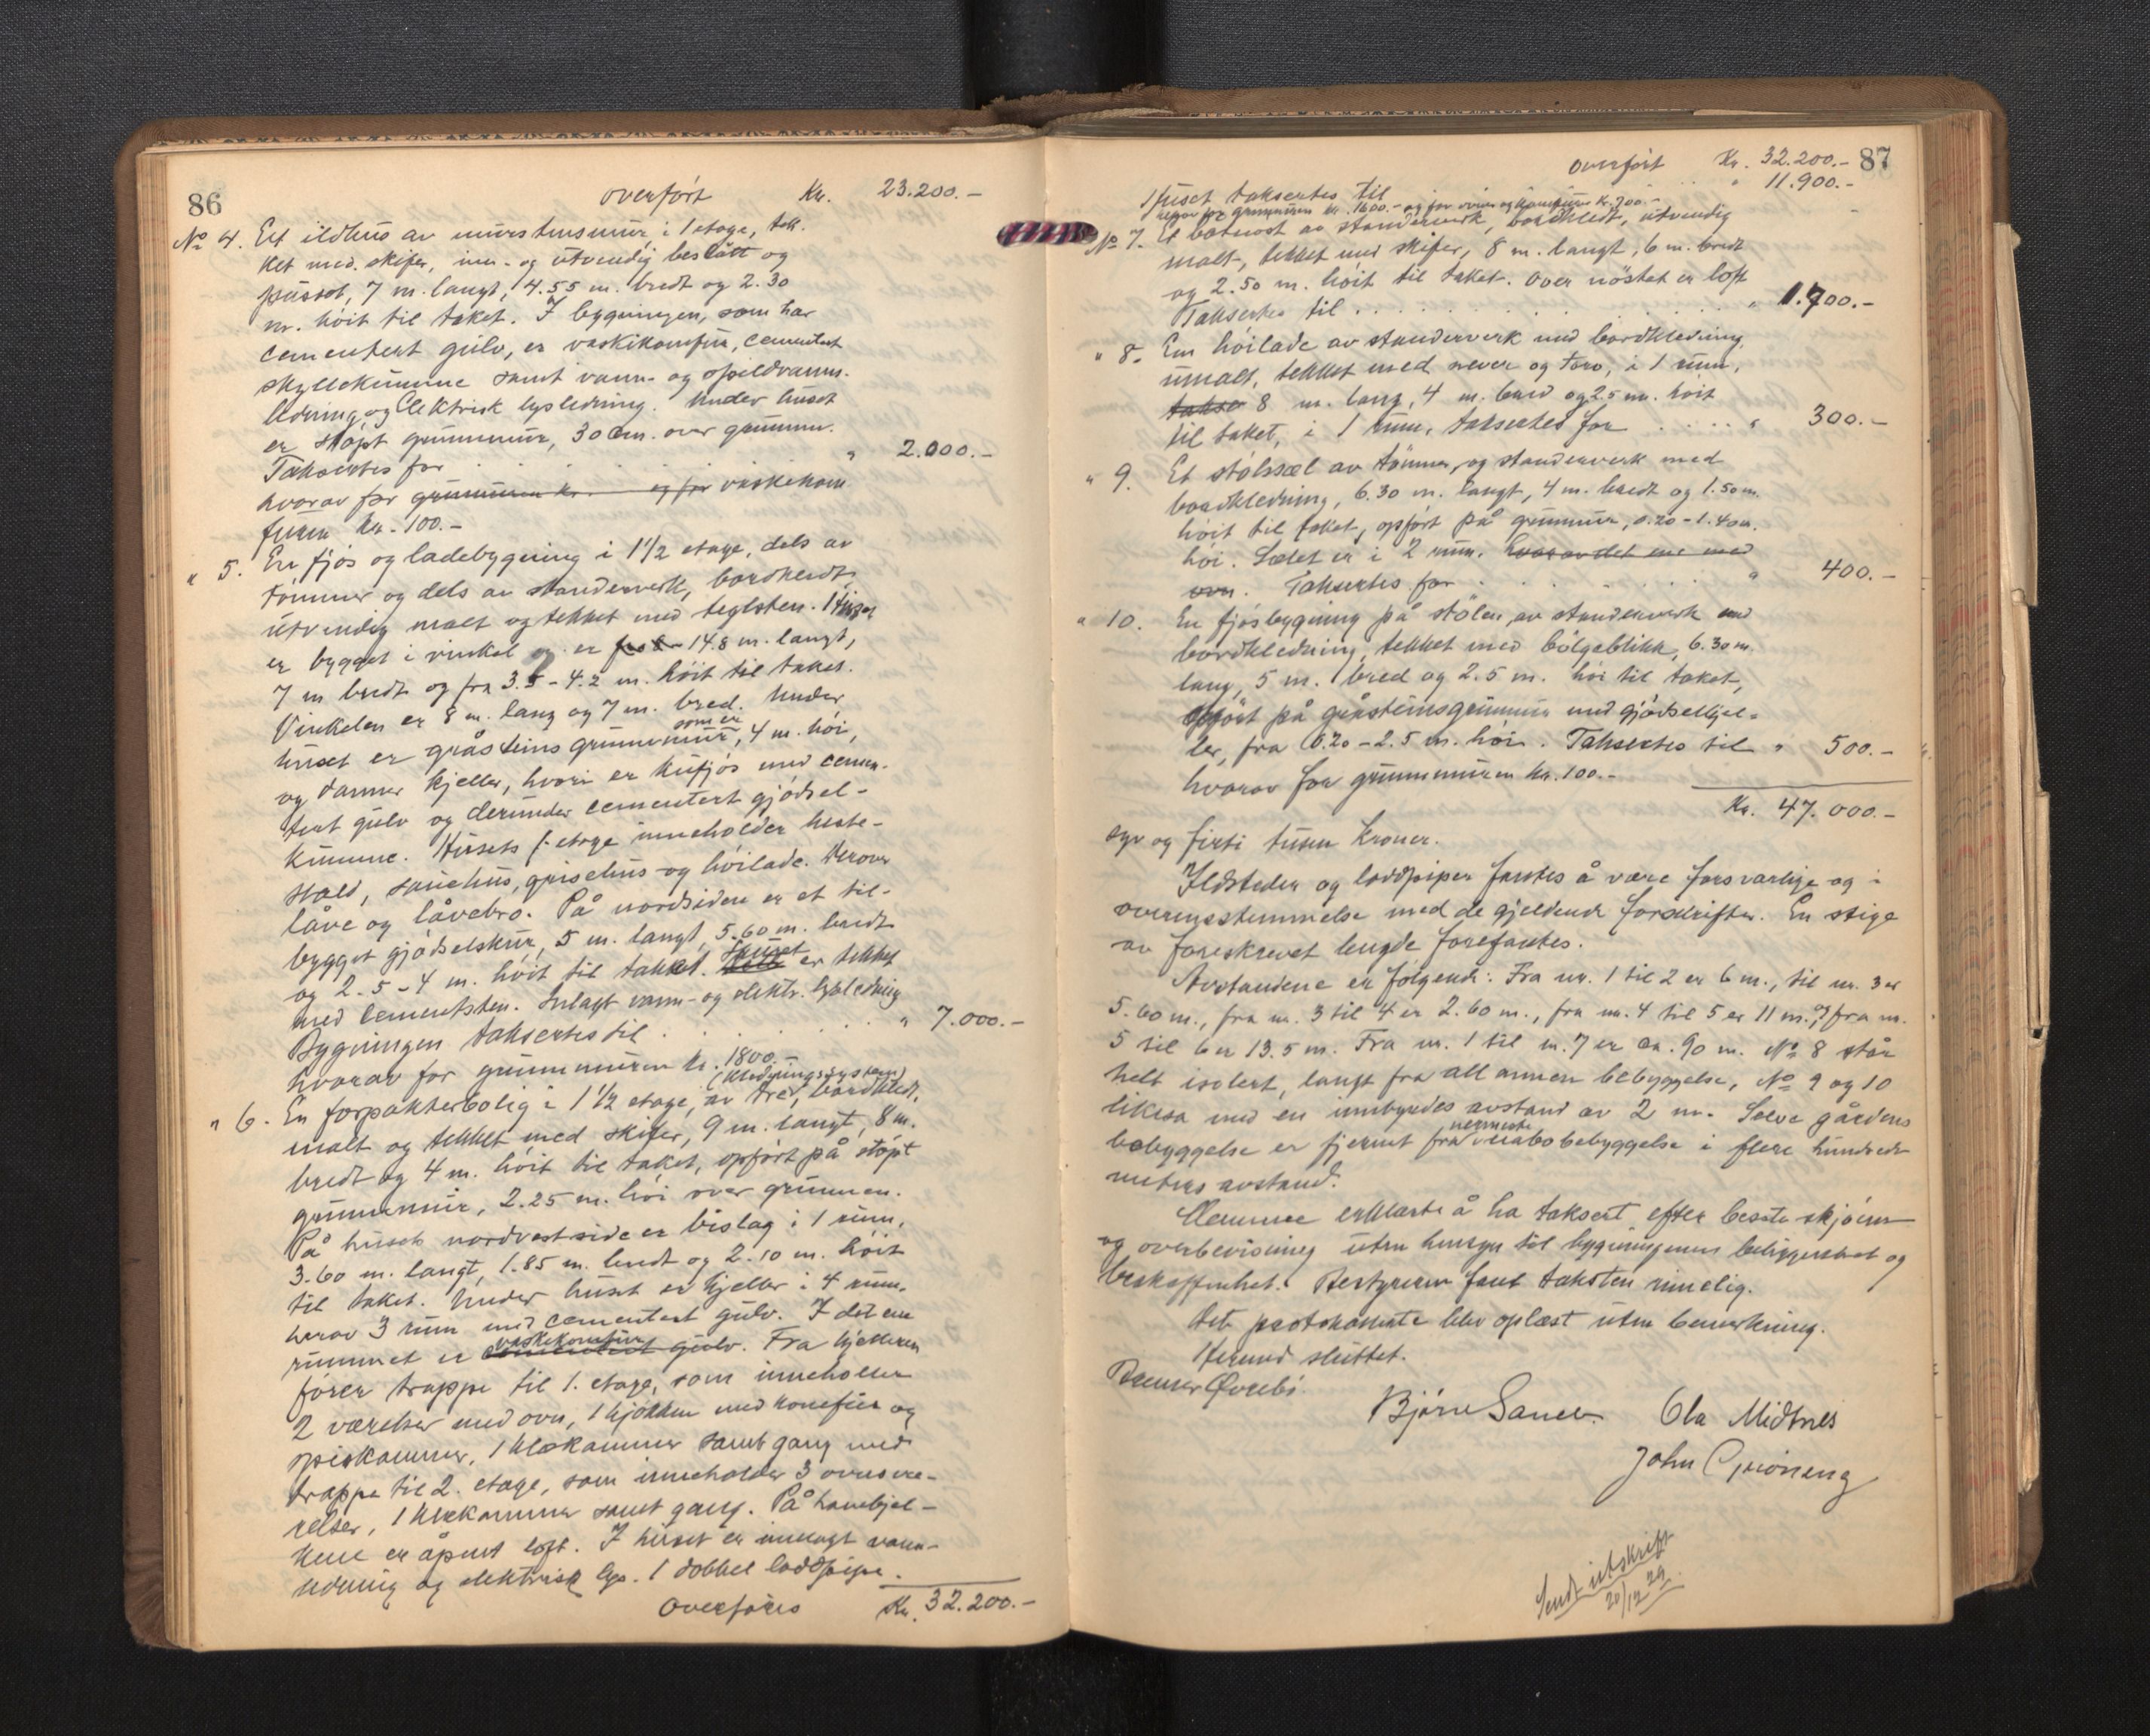 86
overført Kr. 23.200.-
No 4. Ett ildhus av murstensmur i 1 etage, tek-
ket med skifer, inn- og utvendig beslått og
pusset, 7 m. langt, 4.55 m. bredt og 2.30
m. høit til taket. I bygningen, som har
cementert gulv, er vaskikomfur, cementert
skyllekumme samt vann- og spildvanns-
ledning og elektrisk lysledning. Under huset
er støpt grunnmur, 30 cm. over grunnen.
Takseres for . . . " 2.000.-
hvorav for grunnmuren kr. og for vaskekom
furen kr. 100.-
" 5. En fjøs og ladebygning i 1 1/2 etage, dels av
tømmer og dels av standerverk, bordkledt,
utvendig malt og tekket med teglsten. Huset
er bygget i vinkel og er 14.8 m. langt,
7 m bredt og fra 3.5 - 4.2 m. høit til taket.
Vinkelen er 8 m. lang og 7 m. bred. Under
huset er gråsteins grunnmur, som er 4 m. høi,
og danner kjeller, hvori er kufjøs med cemen-
tert gulv og derunder cementert gjødsel-
kumme. Husets 1. etage inneholder heste-
stald, sauehus, grisehus og høilade. Derover
låve og låvebro. På nordsiden er et til-
bygget gjødselskur, 5 m. langt, 5.60 m. bredt
og 2.5 - 4 m. høit til taket. Skuret er tekket
med cementsten. Inlagt vann- og elektr. lysledning
Bygningen takseres til . . . " 7.000.-
hvorav for grunnmuren kr. 1800.-
" 6. En forpakterbolig i 1 1/2 etage, av tre, (kledningssystem) bordkled.
malt og tekket med skifer, 9 m. langt, 8 m.
bredt og 4 m. høit til taket, opført på støpt
grunnmur, 2.25 m. høi over grunnen.
På husets nordvestside er bislag i 1 rum,
3.60 m. langt, 1.85 m. bredt og 2.10 m. høit
til taket. Under huset er kjeller i 4 rum,
hvorav 3 rum med cementert gulv. I det ene
rummet er vaskekomfur cementert gulv. Fra kjelleren
fører trappe til 1. etage, som inneholder
2 værelser med ovn, 1 kjøkken med komfur og
spiskammer, 1 klækammer samt gang med
trappe til 2. etage, som inneholder 3 ovnsvæ-
relser, 1 klækammer samt gang. På hanebjel-
kene er åpent loft. I huset er innlagt vann-
ledning og elektrisk lys. 1 dobbel loddpipe.
Overføres Kr. 32.200.-
87
overført Kr. 32.200.-
Huset takseres til . . " 11.900.-
herav for grunnmuren kr. 1600.- og for ovner og komfurer kr. 700.-
No 7. Et båtnost av standerverk, bordkledt, utvendig
malt, tekket med skifer, 8 m. langt, 6 m. bredt
og 2.50 m. høit til taket. Over nöstet er loft
Takseres til . . . " 1.700.-
" 8. Em höilade av standerverk med bordkledning,
umalt, tekket med never og torv, i 1 rum,
takse 8 m. lang, 4 m. bred og 2.5 m. høit
til taket, i 1 rum, takseres for . . . " 300.-
" 9. Et stølssæl av tømmer, og standerverk med
bordkledning, 6.30 m. langt, 4 m. bredt og 1.50 m.
høit til taket, opført på grunnmur, 0.20 - 1.40 m.
høi. Sælet er i 2 rum, hvorav det ene med
ovn. Takseres for . . . " 400.-
" 10. En fjøsbygning på stølen, av standerverk med
bordkledning, tekket med bølgeblikk, 6.30 m.
lang, 5 m. bred og 2.5 m. høi til taket,
opført på gråsteinsgrunnmur med gjødselkjel-
ler, fra 0.20 - 2.5 m. høi. Takseres til " 500.-
hvorav for grunnmuren kr. 100.-
Kr. 47.000.-
syv og firti tusen kroner.
Ildsteder og loddpiper fantes å være forsvarlige og i
overensstemmelse med de gjeldende forskrifter. En stige
av foreskrevet lengde forefantes.
Avstandene er følgende: Fra nr. 1 til 2 er 6 m., til nr. 3 er
5.60 m., fra nr. 3 til 4 er 2.60 m., fra nr. 4 til 5 er 11 m., fra nr.
5 til 6 er 13.5 m. Fra nr. 1 til nr. 7 er ca. 90 m. No 8 står
helt isolert, langt fra all annen bebyggelse, No 9 og 10
likesa med en innbyrdes avstand av 2 m. Selve gårdens
bebyggelse er fjernet fra nermeste nabobebyggelse i flere hundrede
meters avstand.
Mennene erklærte å ha taksert efter beste skjønn
og overbevisning uten hensyn til bygningenes beliggenhet og
beskaffenhet. Bestyreren fant taksten rimelig.
Det protokollerte blev oplæst uten bemerkning.
Hermed sluttet.
Øvrebö
Bjørn Ola Midtnes
John Grøneng
Sendt utskrift
20/12 29.